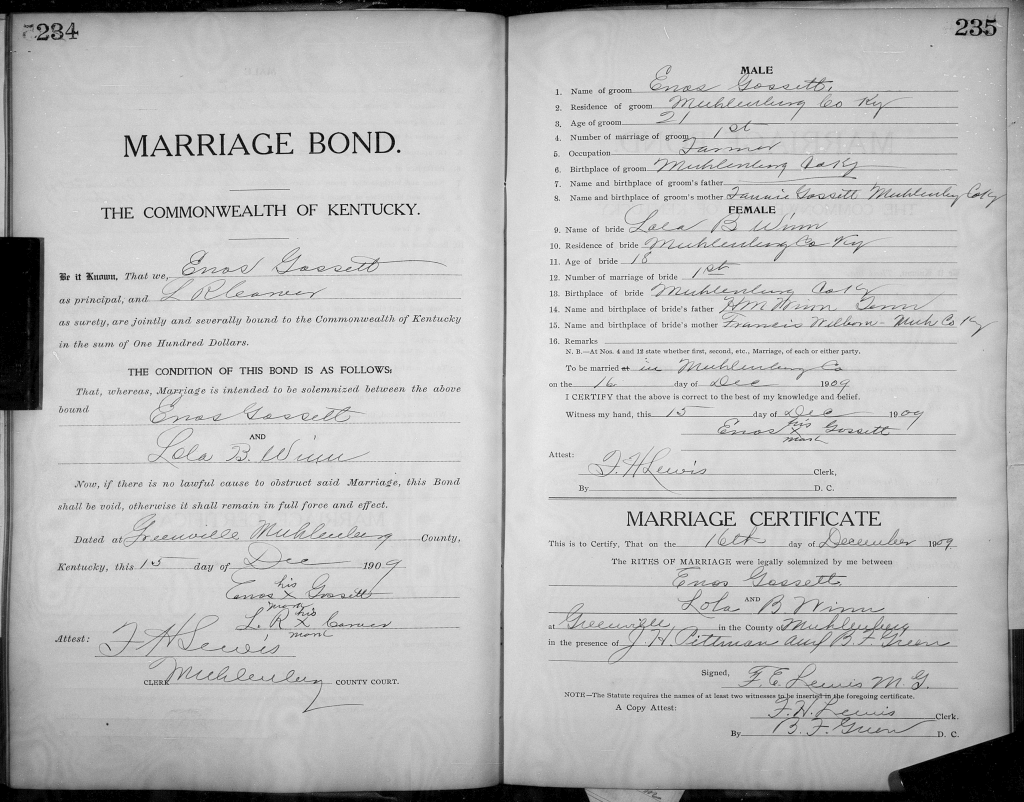 234
MARRIAGE BOND.
THE COMMONWEALTH OF KENTUCKY.
Be it Known, That we, Enos Gossett
as principal, and L R Carver
as surety, are jointly and severally bound to the Commonwealth of Kentucky
in the sum of One Hundred Dollars.
THE CONDITION OF THIS BOND IS AS FOLLOWS:
That, whereas, Marriage is intended to be solemnized between the above
bound Enos Gossett
AND
Lola B. Winn
Now, if there is no lawful cause to obstruct said Marriage, this Bond
shall be void, otherwise it shall remain in full force and effect.
Dated at Greenville Muhlenberg County,
Kentucky, this 15 day of Dec 1909
his
Enos X Gossett
mark
his
L. R X Carver
mark
Attest: F H Lewis
CLERK Muhlenberg COUNTY COURT.
235
MALE
1. Name of groom Enos Gossett.
2. Residence of groom Muhlenburg Co Ky
3. Age of groom 21
4. Number of marriage of groom 1st
5. Occupation Farmer
6. Birthplace of groom Muhlenburg Co Ky
7. Name and birthplace of groom's father
8. Name and birthplace of groom's mother Fannie Gossett Muhlenburg Co Ky
FEMALE
9. Name of bride Lola B Winn
10. Residence of bride Muhlenburg Co Ky
11. Age of bride 18
12. Number of marriage of bride 1st
13. Birthplace of bride Muhlenburg Co Ky
14. Name and birthplace of bride's father H M Winn Tenn
15. Name and birthplace of bride's mother Francis Welborn - Muh Co Ky
16. Remarks
N. B.—At Nos. 4 and 12 state whether first, second, etc., Marriage, of each or either party.
To be married at in Muhlenburg Co
on the 16 day of Dec 1909
I CERTIFY that the above is correct to the best of my knowledge and belief.
Witness my hand, this 15 day of Dec 1909
his
Enos X Gossett
mark
Attest:
F H Lewis Clerk,
By D. C.
MARRIAGE CERTIFICATE
This is to Certify, That on the 16th day of December 1909
The RITES OF MARRIAGE were legally solemnized by me between
Enos Gossett
AND
Lola B. Winn
at Greenville, in the County of Muhlenberg
in the presence of J H. Pittman and B. F. Green
Signed, F. E. Lewis M. G.
NOTE—The Statute requires the names of at least two witnesses to be inserted in the foregoing certificate.
A Copy Attest: F. H. Lewis Clerk.
By B. F. Green D. C.